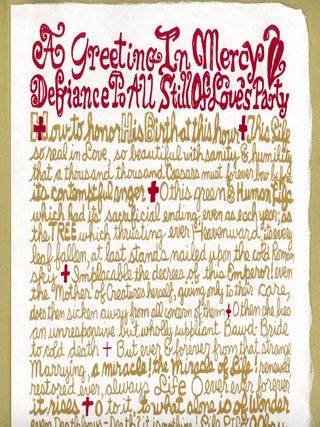 A Greeting In Mercy &
Defiance To All Still Of Love's Party
How to honor His Birth at this hour + This Life
so real in Love, so beautiful with sanity & humility
that a thousand thousand Caesars must forever bow before
its contemptful anger + O this green & Human Life
which had its sacrificial ending, even as each year, as
the TREE which thrusting ever Heavenward, its every
leaf fallen, at last stands nailed upon the cold Roman
sky + Implacable the decrees of this Emperor! even
the Mother of Creatures herself, giving only to their care,
does then sicken away from all concern of them + O then she lies
an unresponsive but wholly suppliant Bawd-Bride
to cold death + But ever & forever from that strange
Marrying, a miracle! the Miracle of Life! renewed
restored ever, always Life O ever ever forever
it rises + O to it, to what alone is of Wonder
even Death bows – Death? it is nothing! Life